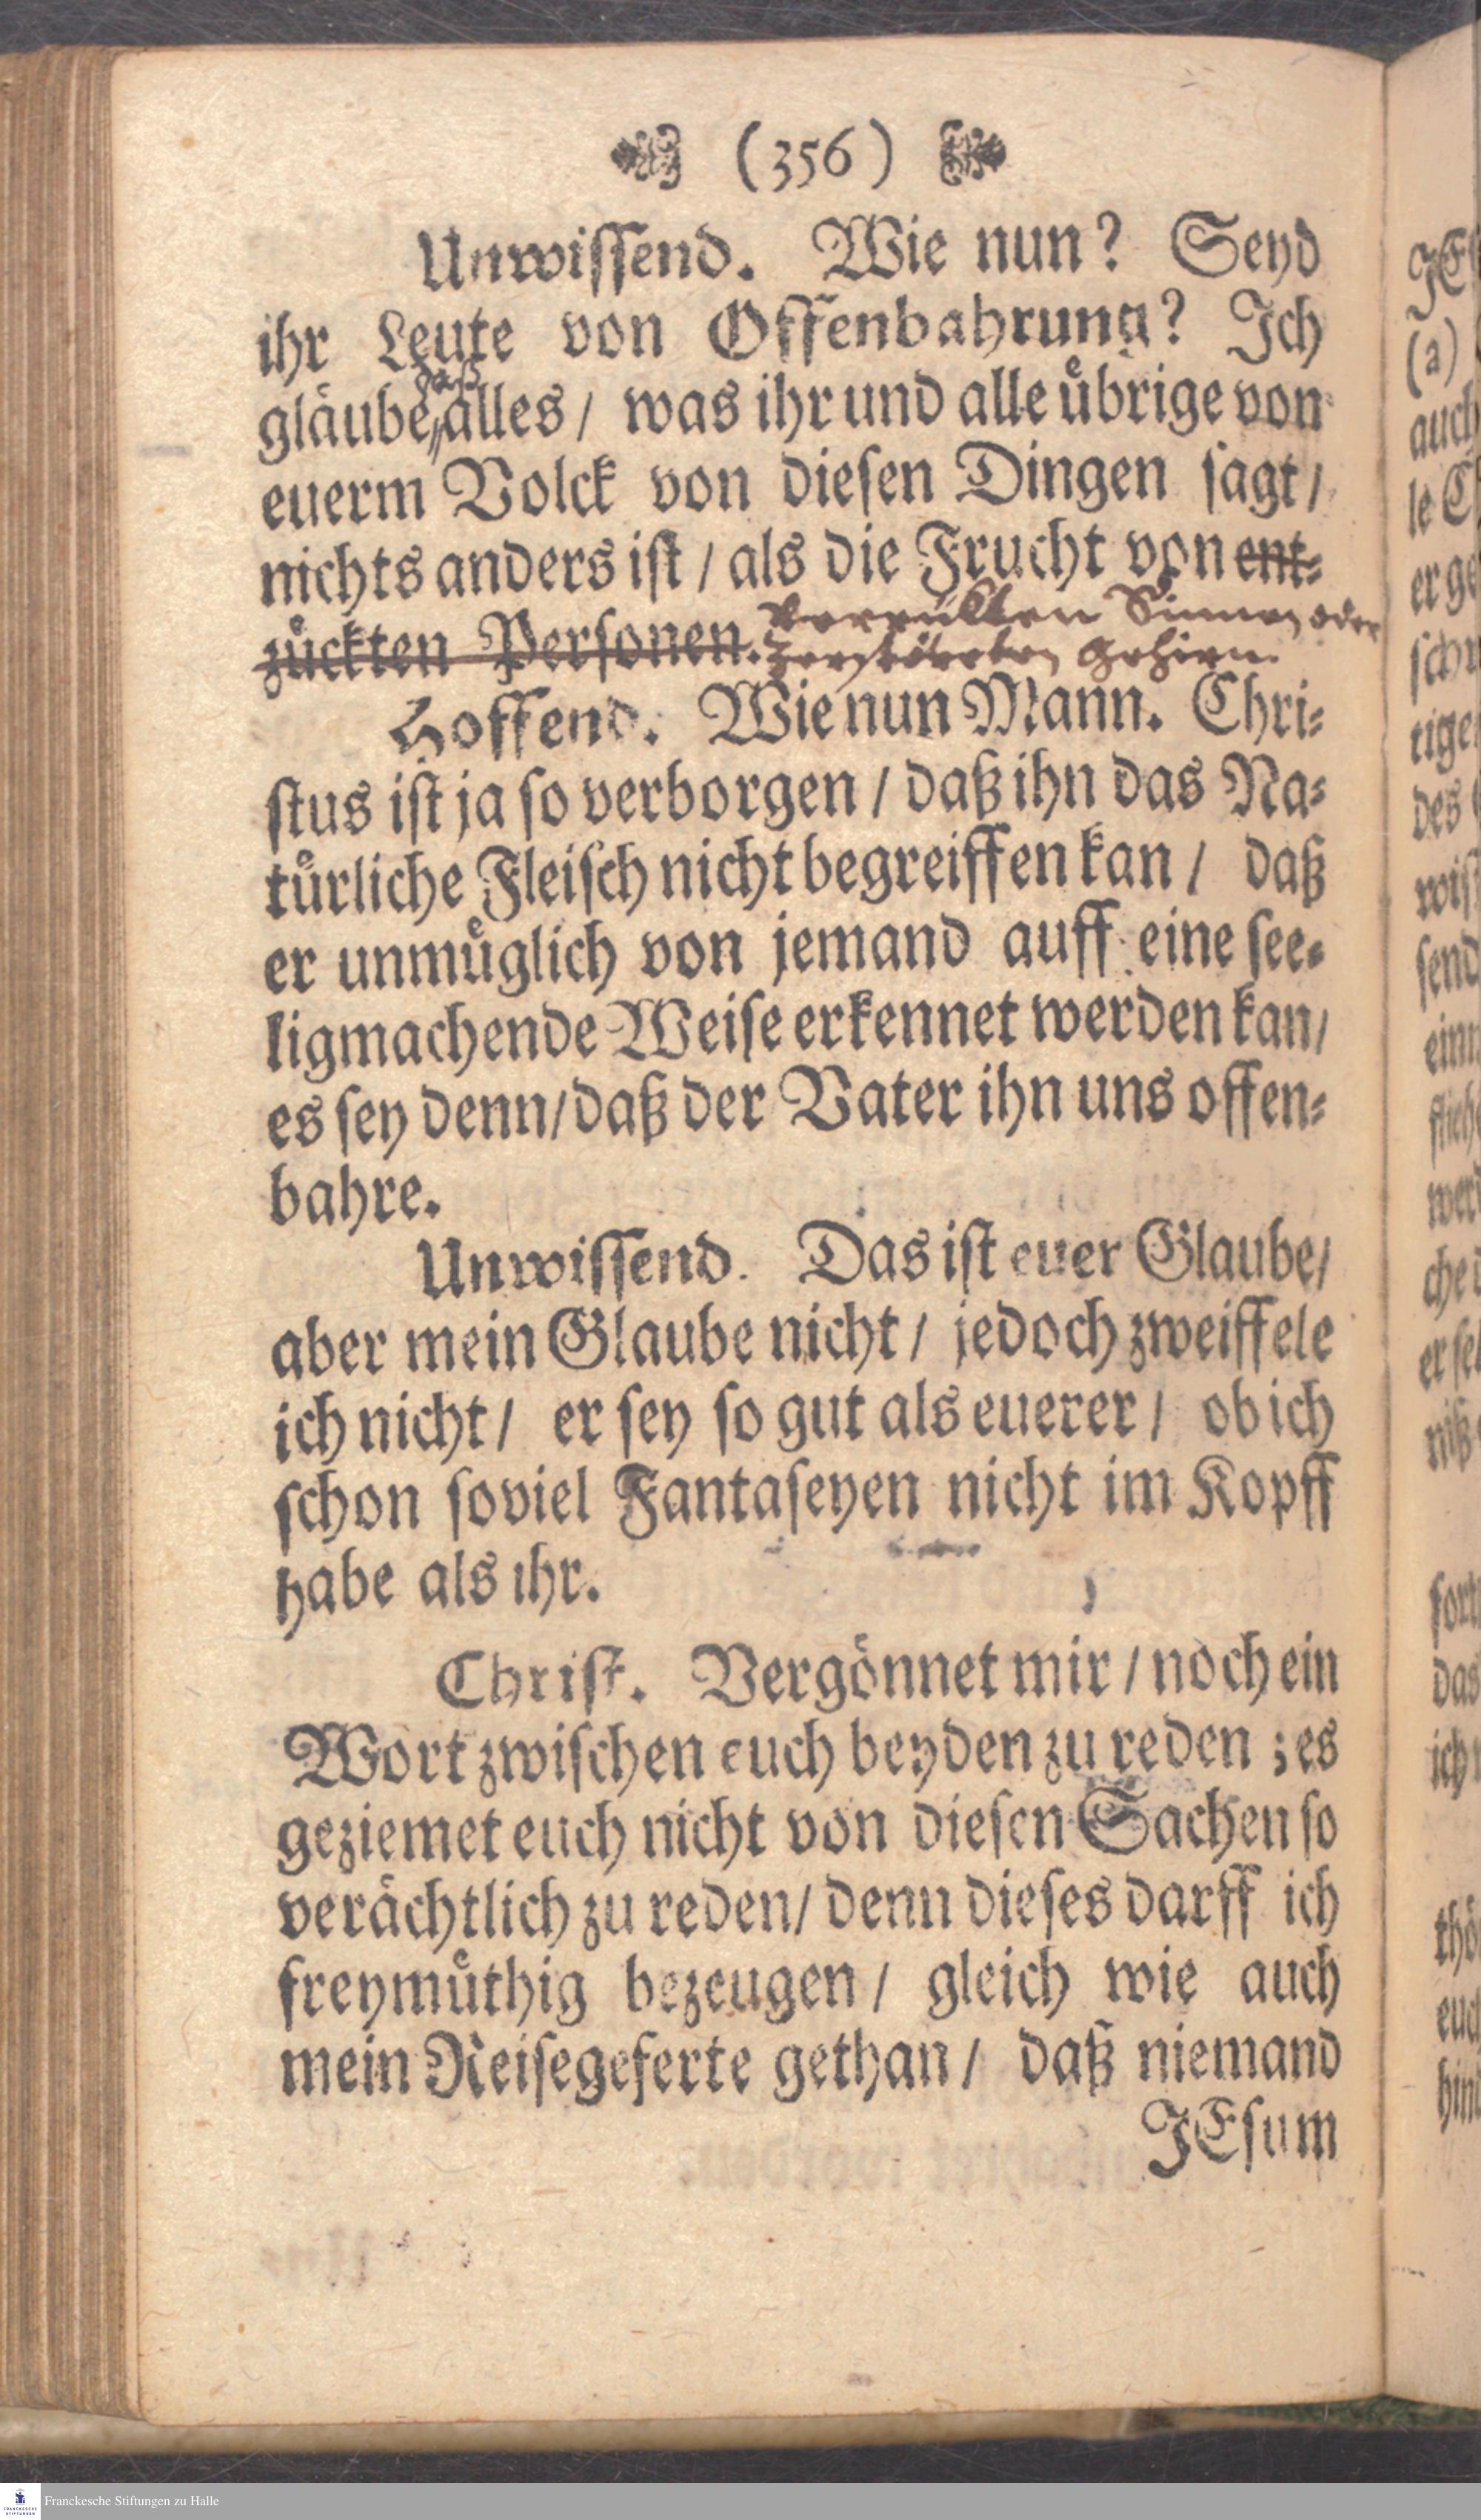 (356)
Unwissend. Wie nun? Seyd
ihr Leute von Offenbahrung? Ich
daß
gläube, alles / was ihr und alle uͤbrige von
euerm Volck von diesen Dingen sagt /
nichts anders ist / als die Frucht von ent-
verrükten Sinnen oder
zuͤckten Personen. zerstöreten Gehirn.
Hoffend. Wie nun Mann. Chri-
stus ist ja so verborgen / daß ihn das Na-
tuͤrliche Fleisch nicht begreiffen kan / daß
er unmuͤglich von jemand auff eine see-
ligmachende Weise erkennet werden kan /
es sey denn / daß der Vater ihn uns offen-
bahre.
Unwissend. Das ist euer Glaube /
aber mein Glaube nicht / jedoch zweiffele
ich nicht / er sey so gut als euerer / ob ich
schon soviel Fantaseyen nicht im Kopff
habe als ihr.
Christ. Vergönnet mir / noch ein
Wort zwischen euch beyden zu reden ; es
geziemet euch nicht von diesen Sachen so
verächtlich zu reden / denn dieses darff ich
freymuͤthig bezeugen / gleich wie auch
mein Reisegeferte gethan / daß niemand
JEsum
Franckesche Stiftungen zu Halle